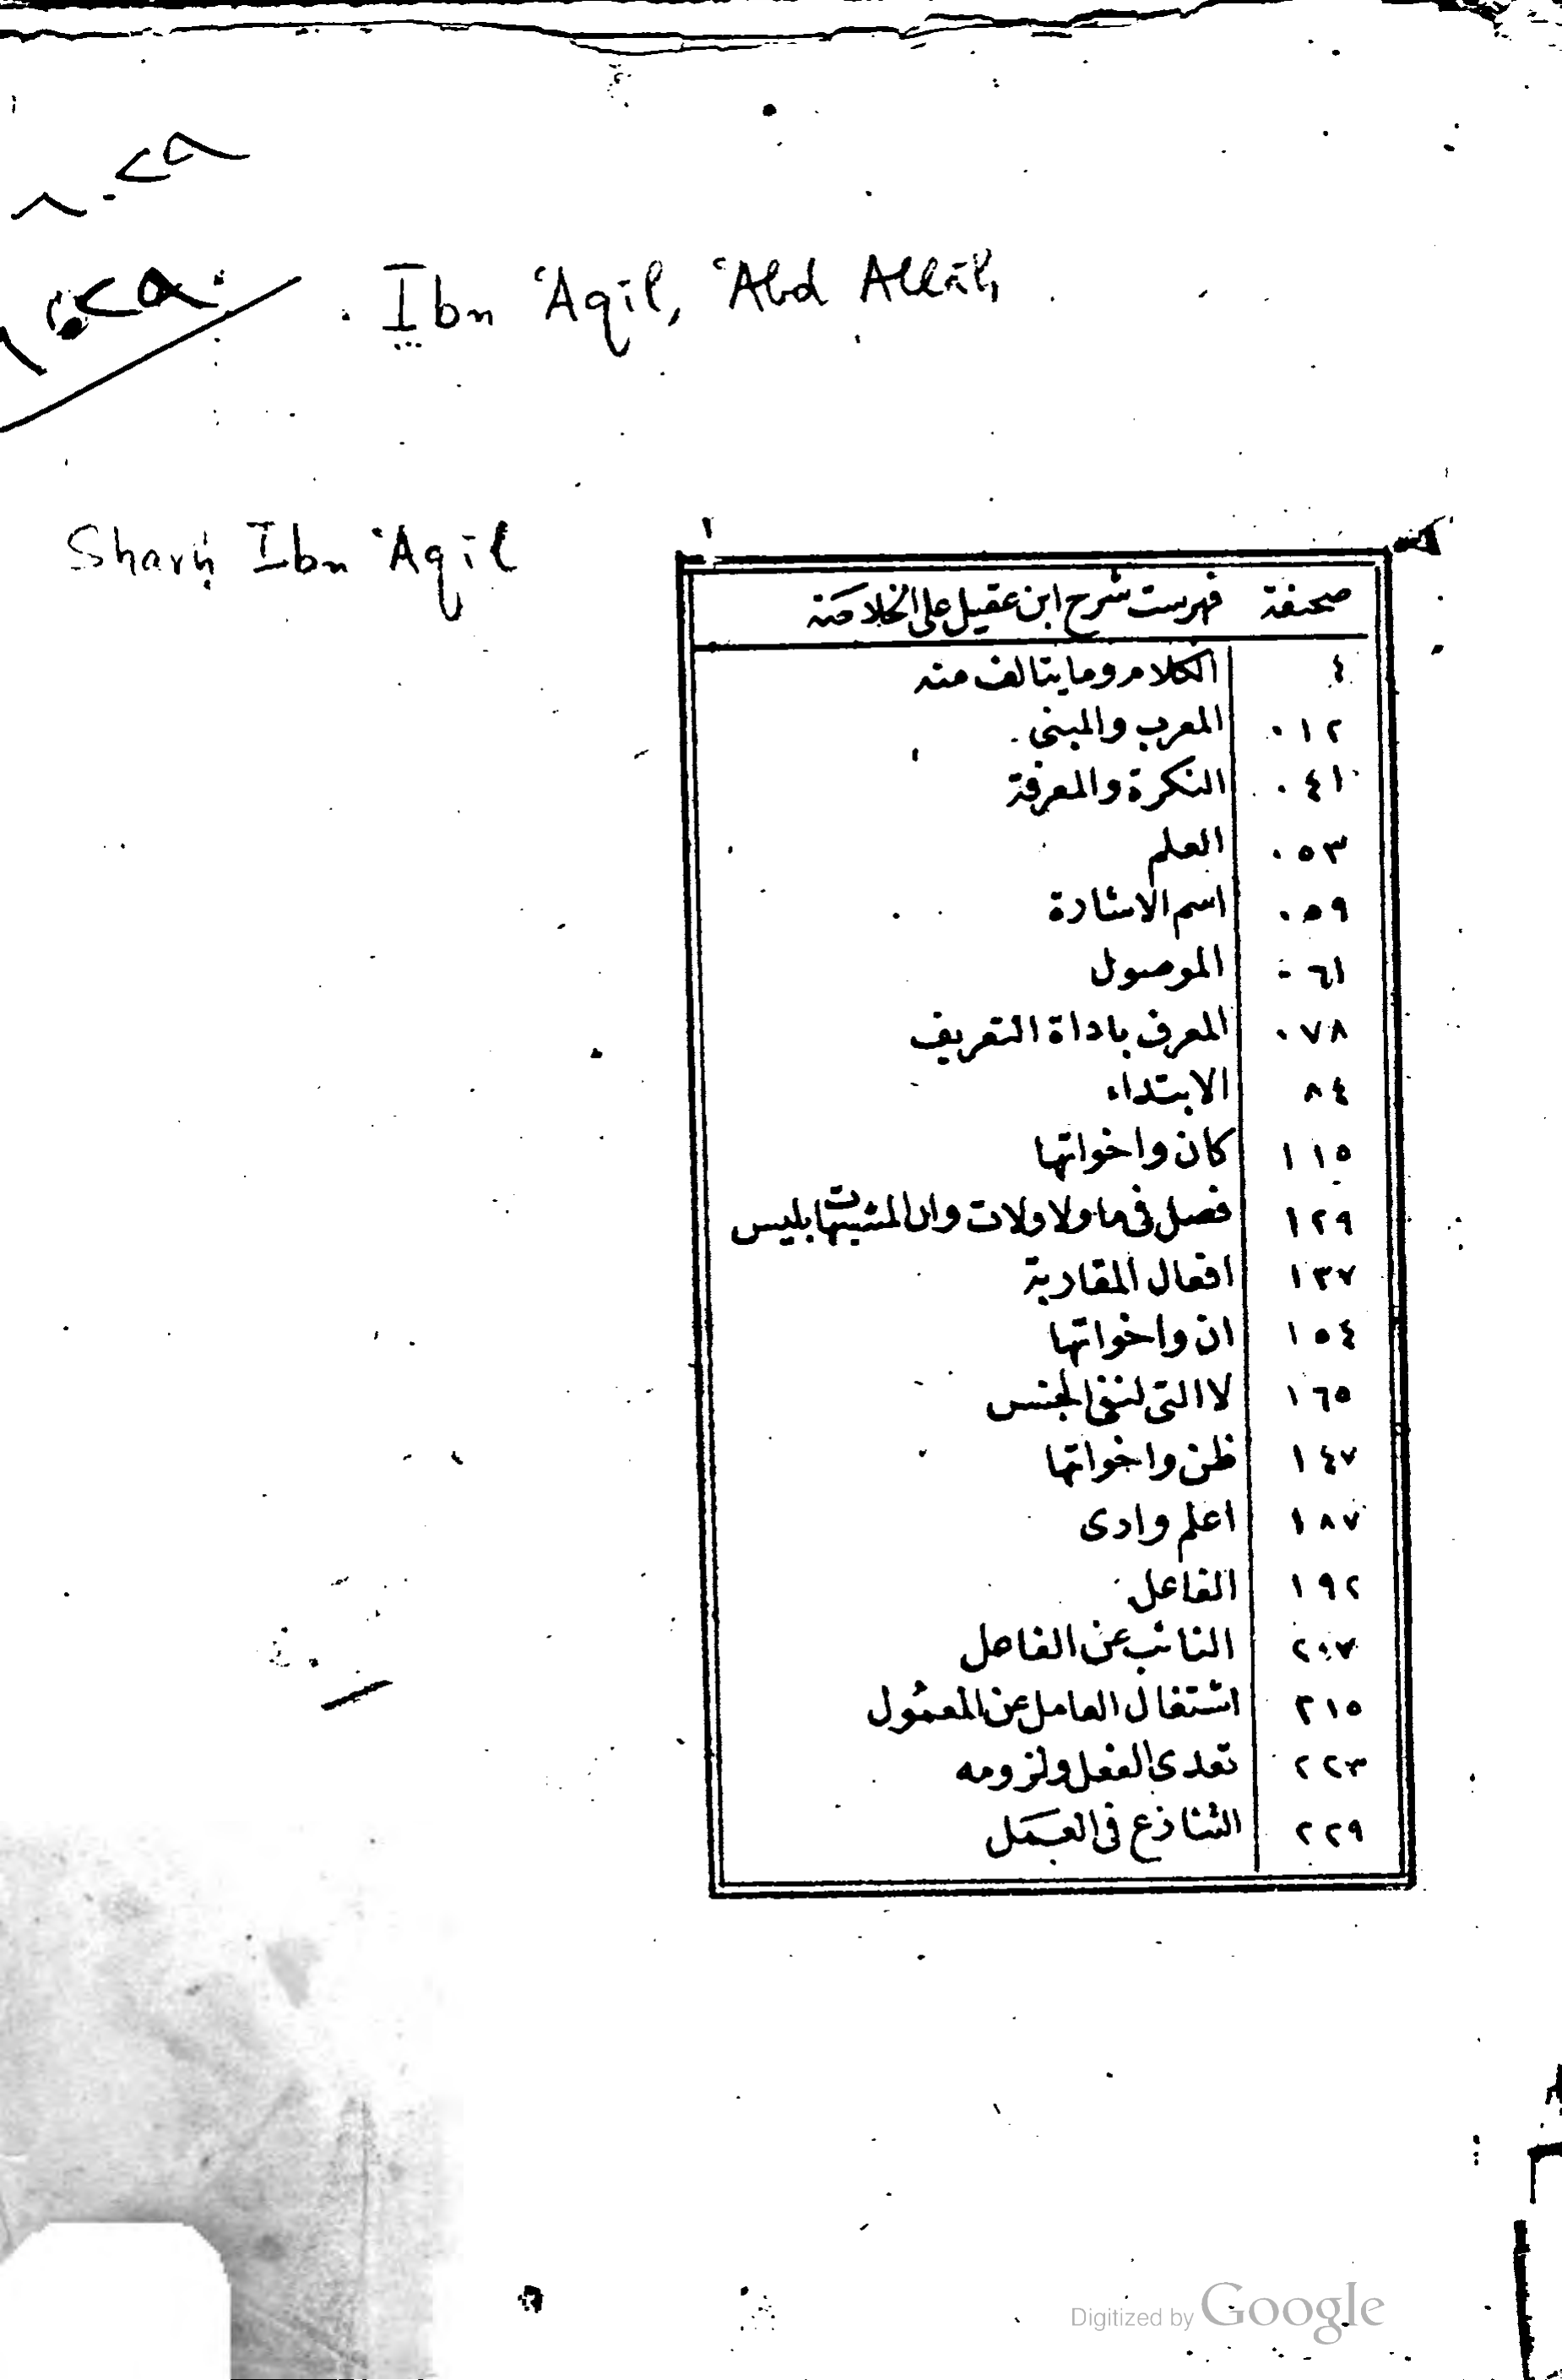 Ibn ʿAqīl, ʿAbd Allāh
Sharḥ Ibn ʿAqīl
صحيفة فهرست شرح ابن عقيل على الخلاصة
٤ الكلام وما يتالف منه
٠١٢ المعرب والمبنى
٠٤١ النكرة والمعرفة
٠٥٣ العلم
٠٥٩ اسم الاشارة
٠٦١ الموصول
٠٧٨ المعرف باداة التعريف
٨٤ الابتداء
١١٥ كان واخواتها
١٢٩ فصل فى ما ولا ولات وان المشبهات بليس
١٣٧ افعال المقاربة
١٥٤ ان واخواتها
١٦٥ لا التى لنفى الجنس
١٤٧ ظن واخواتها
١٨٧ اعلم وارى
١٩٢ الفاعل
٢٠٧ النائب عن الفاعل
٢١٥ اشتغال العامل عن المعمول
٢٢٣ تعدى الفعل ولزومه
٢٢٩ التنازع فى العمل
Digitized by Google